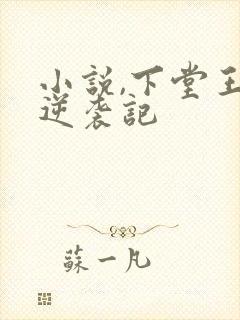 小説,下堂王
逆袭記
蘇一凡